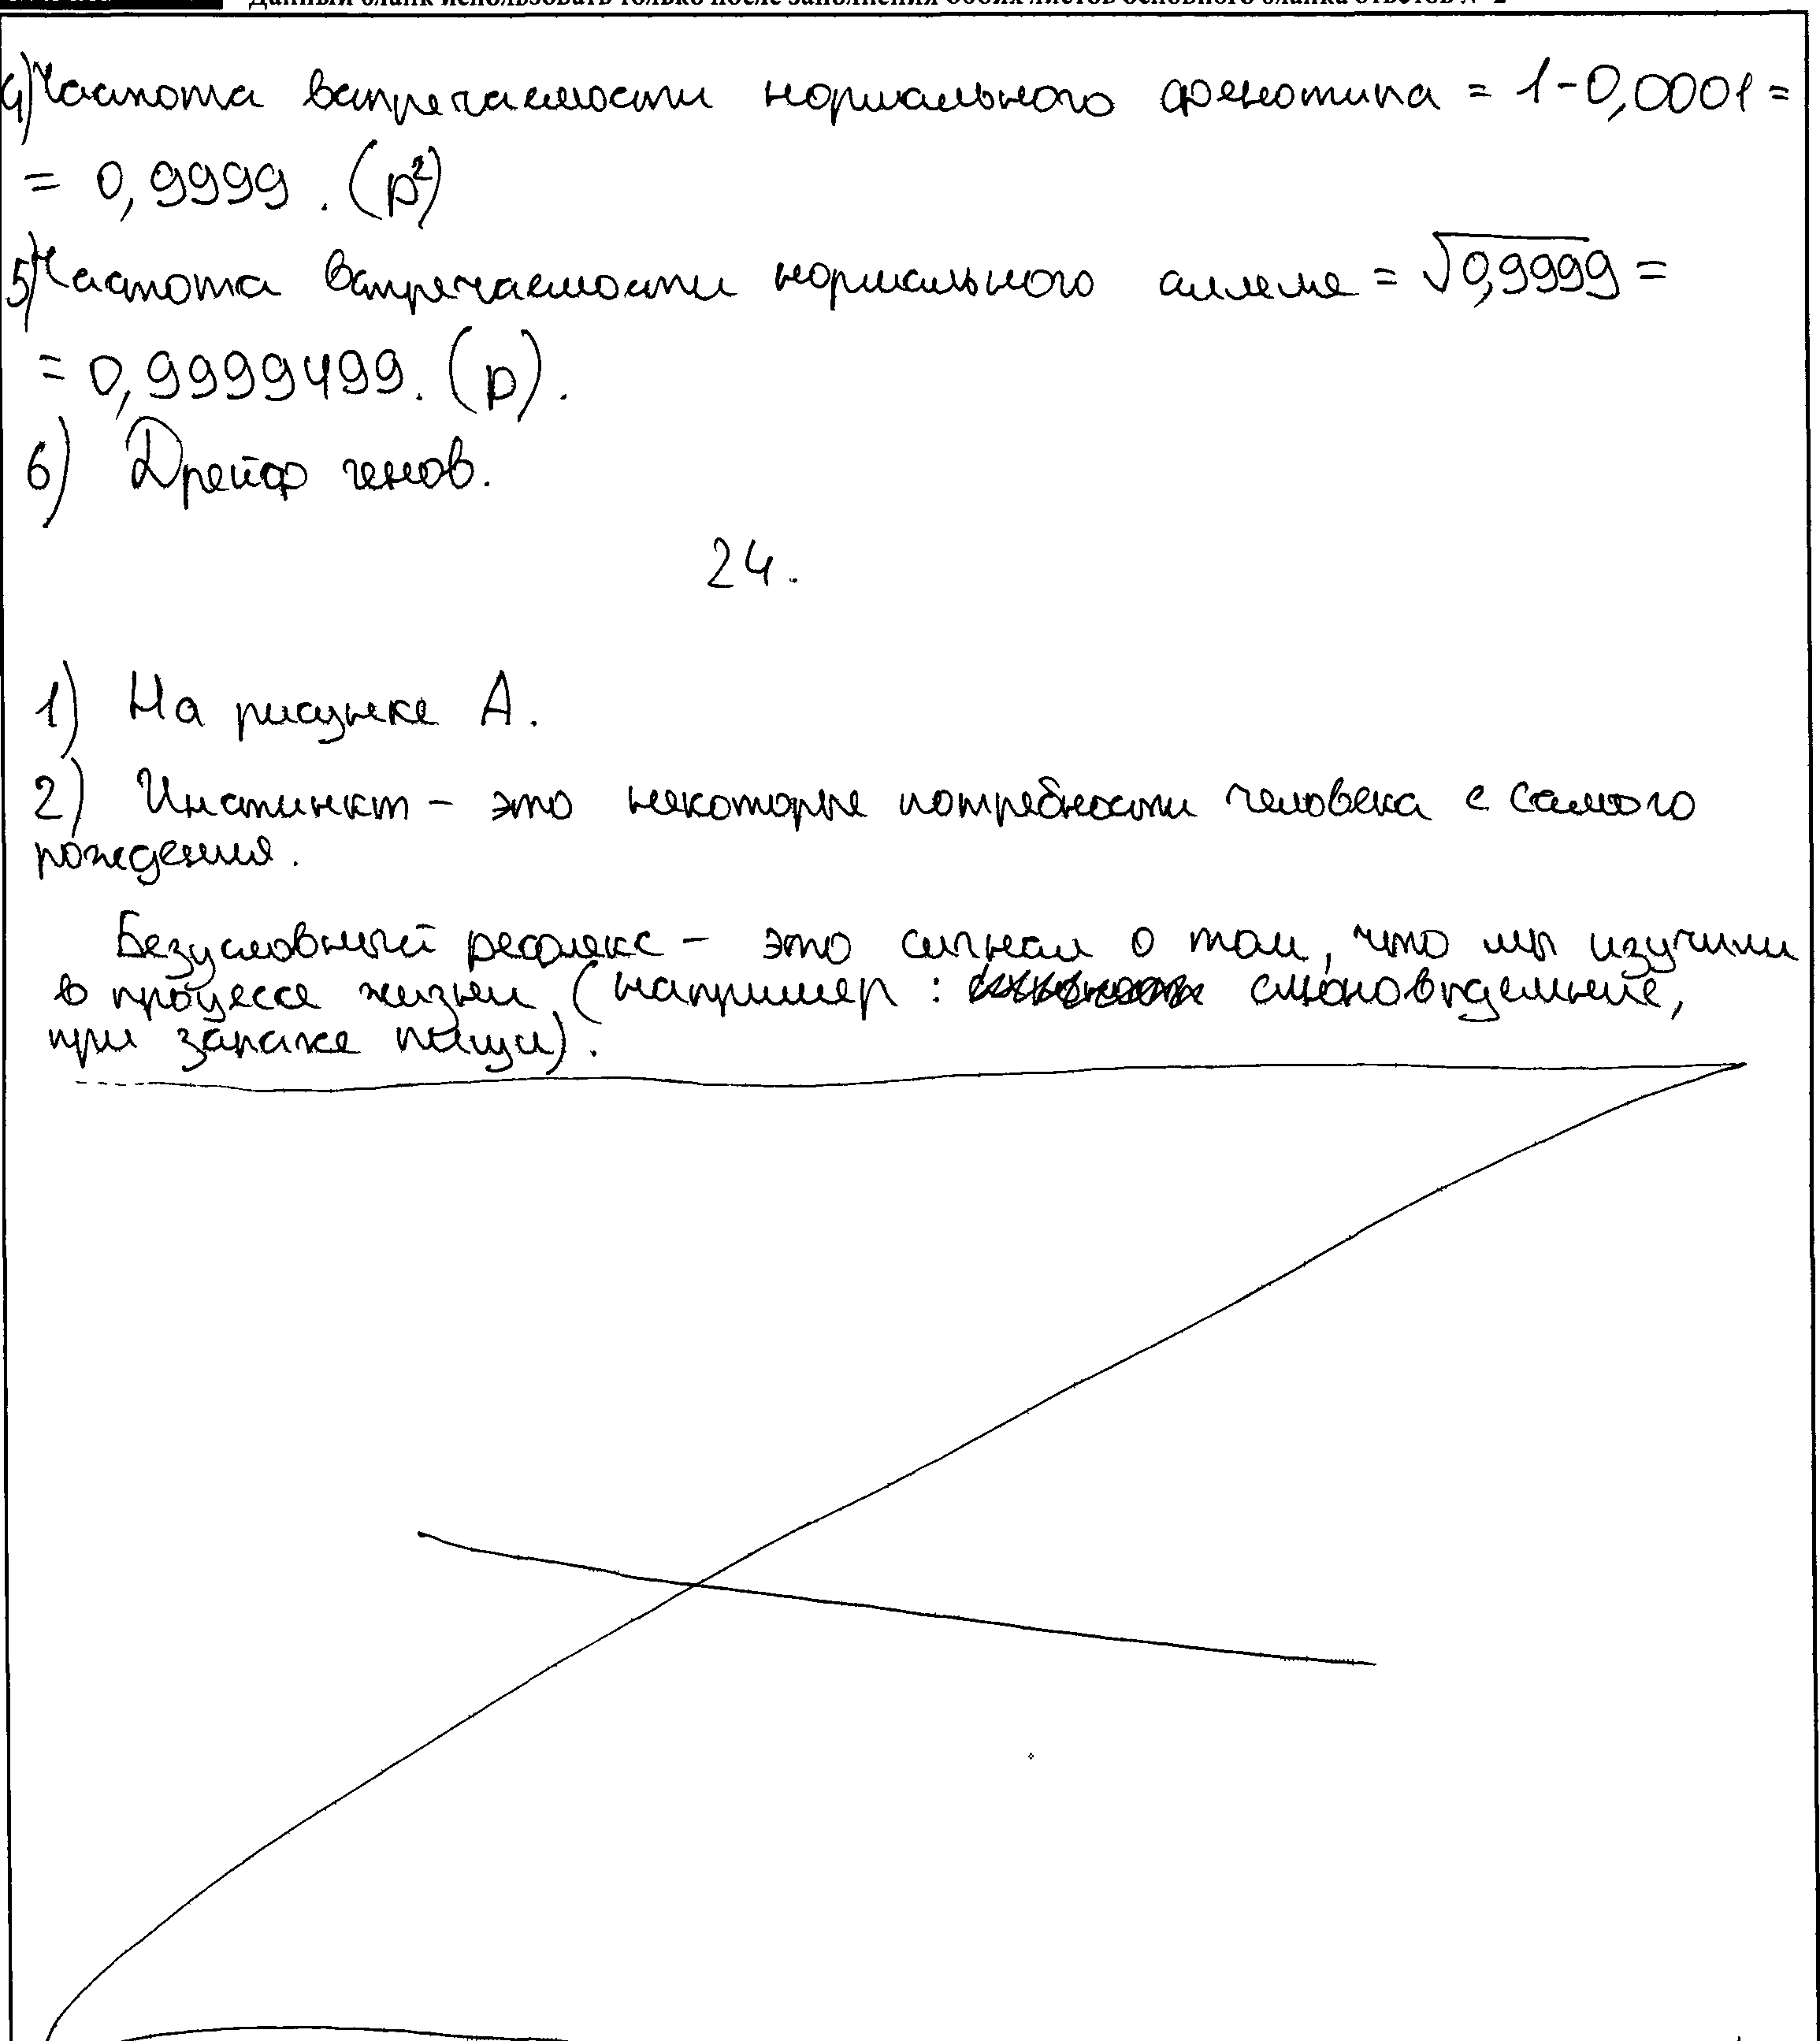 Данный бланк использовать только после заполнения обоих листов основного бланка ответов № 2
4) Частота встречаемости нормального фенотипа = 1-0,0001 =
= 0,9999. (p²)
5) Частота встречаемости нормального аллеля = √0,9999 =
= 0,9999499. (p).
6) Дрейф генов.
24.
1) На рисунке А.
2) Инстинкт – это некоторые потребности человека с самого
рождения.
Безусловный рефлекс – это сигнал о том, что мы изучили
в процессе жизни (например: слюновыделение,
при запахе пищи).